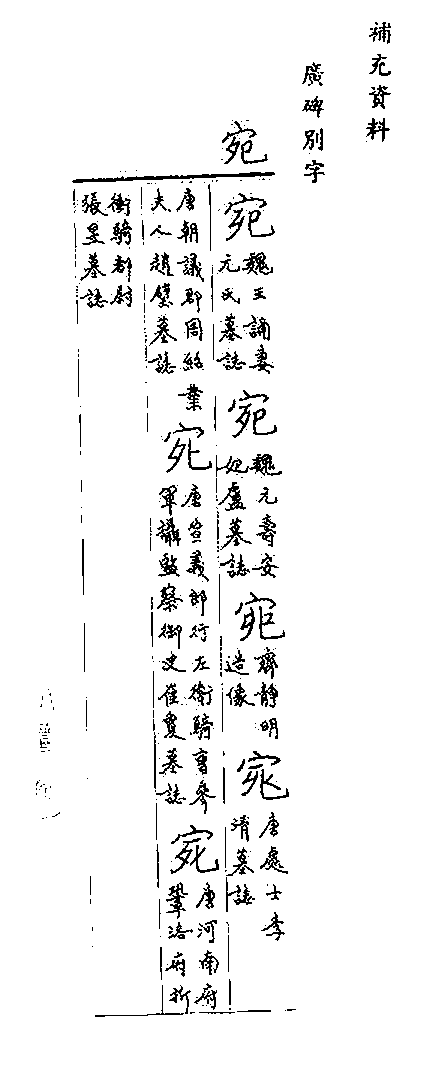 補充資料
廣碑別字
宛
宛
魏王誦妻
元氏墓誌
宛
魏元壽安
妃盧墓誌
宛
齊靜明
造像
宛
唐處士李
清墓誌
唐朝議郎周紹業
夫人趙璧墓誌
宛
唐宣義郎行左衛騎曹參
軍攝監察御史崔墓誌
宛
唐河南府
鞏洛府折
衝騎都尉
張昱墓誌